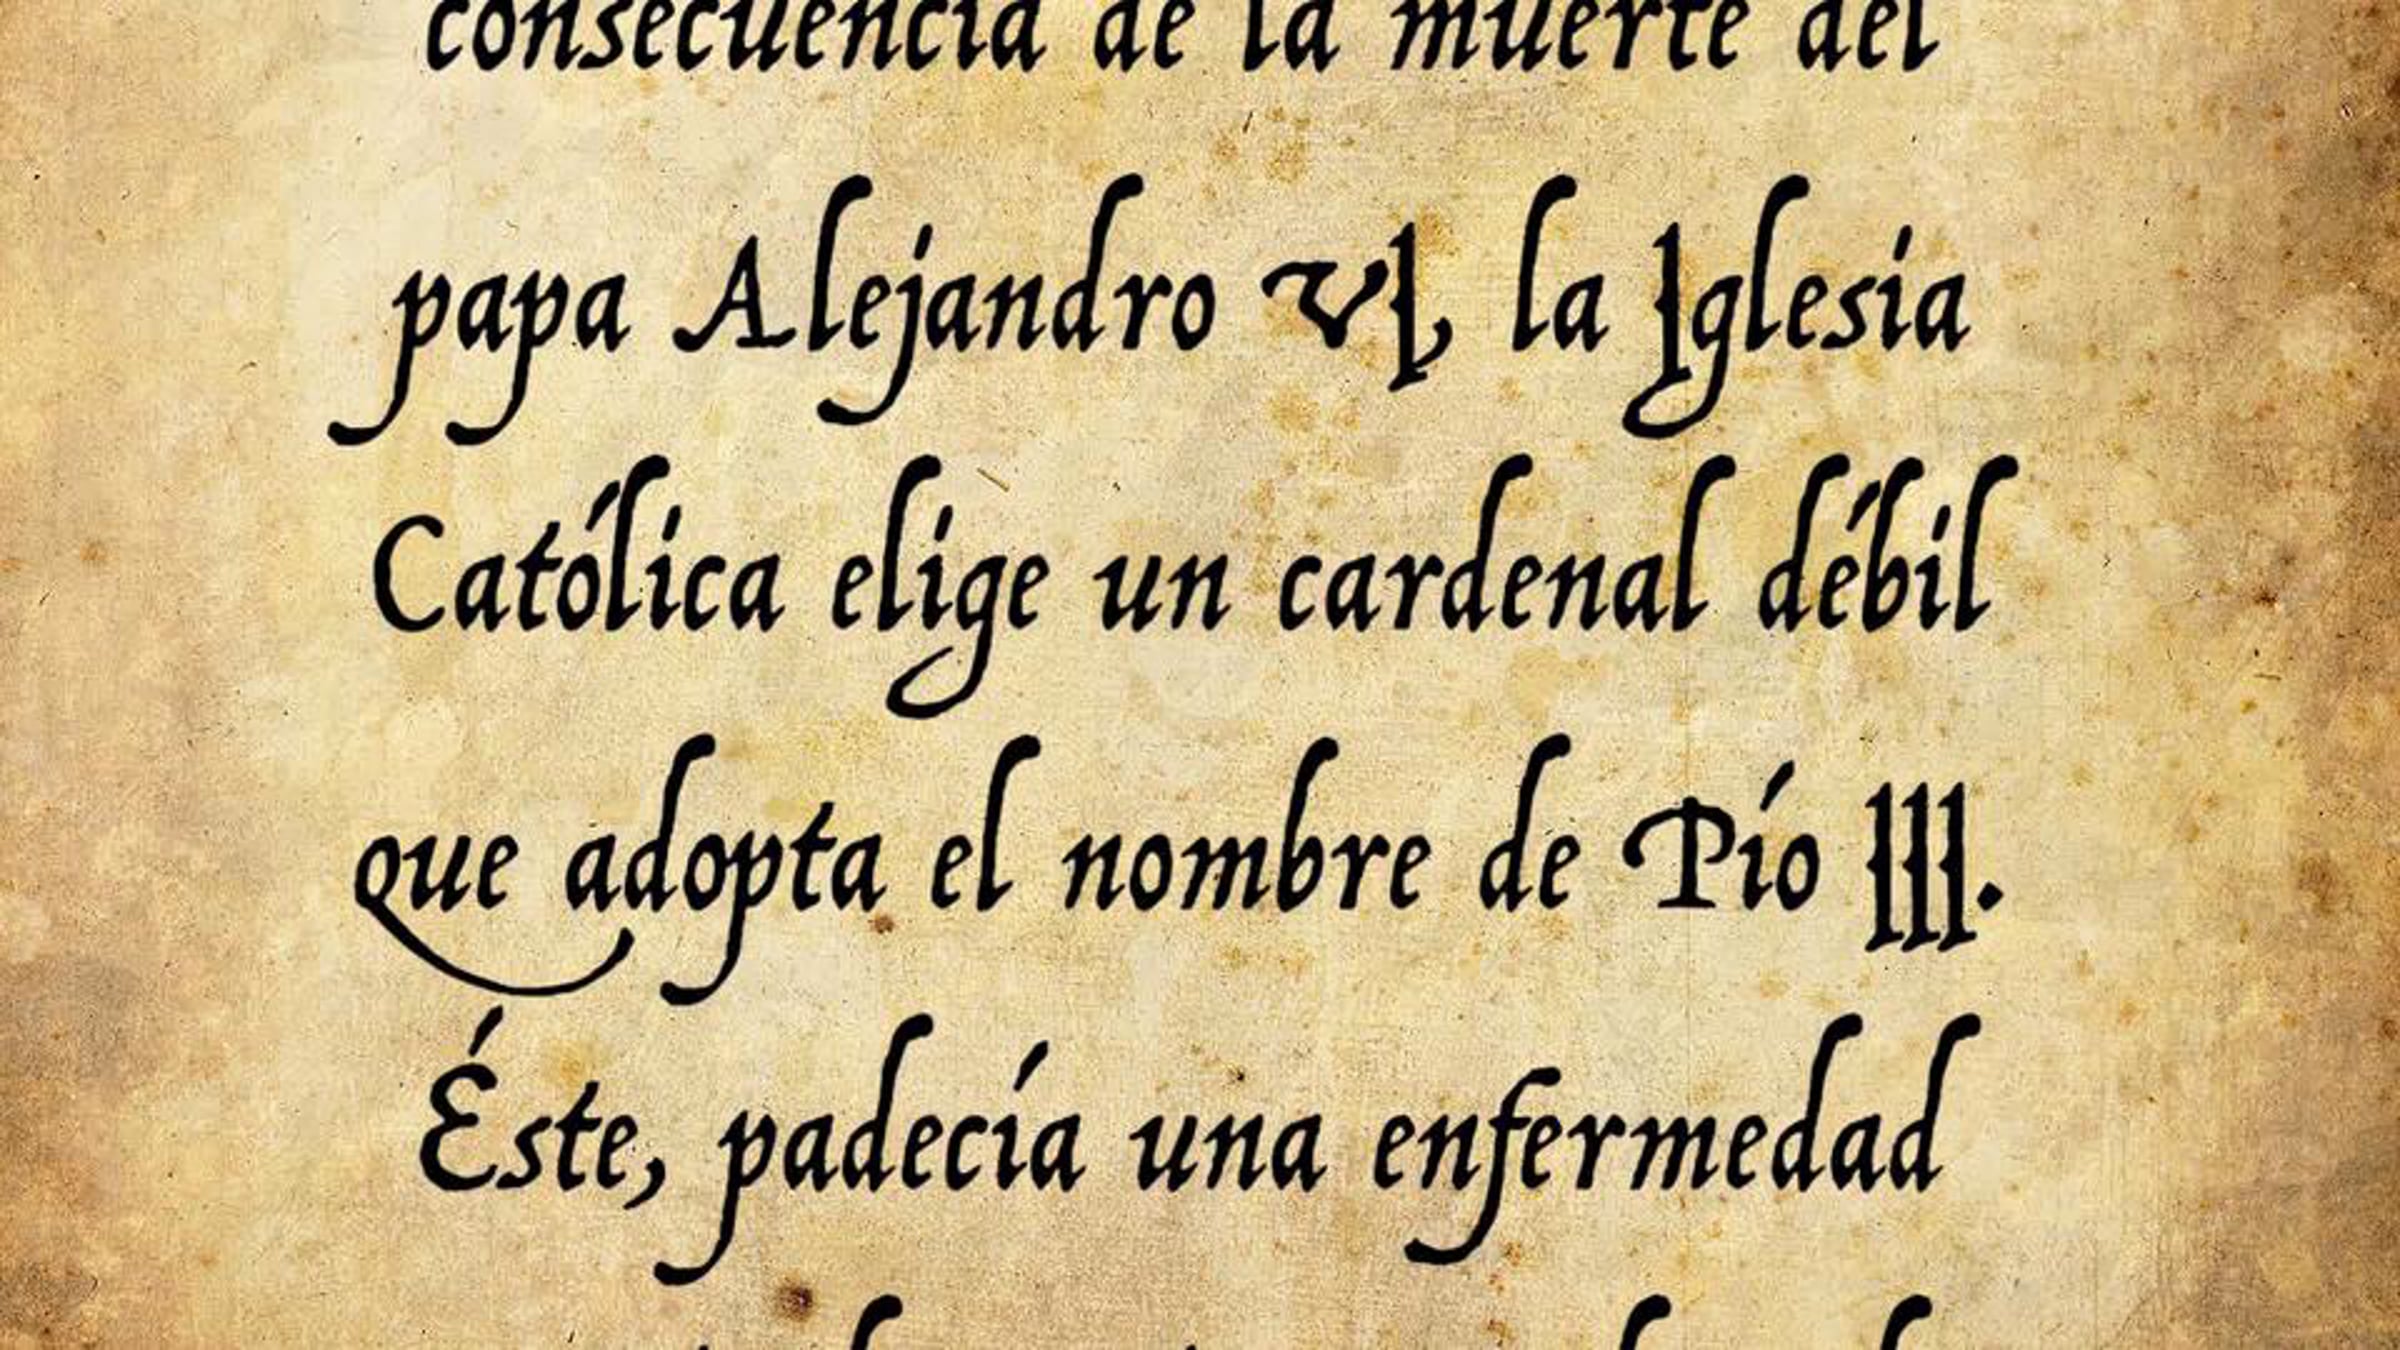 consecuencia de la muerte del
papa Alejandro VI, la Iglesia
Católica elige un cardenal débil
que adopta el nombre de Pío III.
Éste, padecía una enfermedad